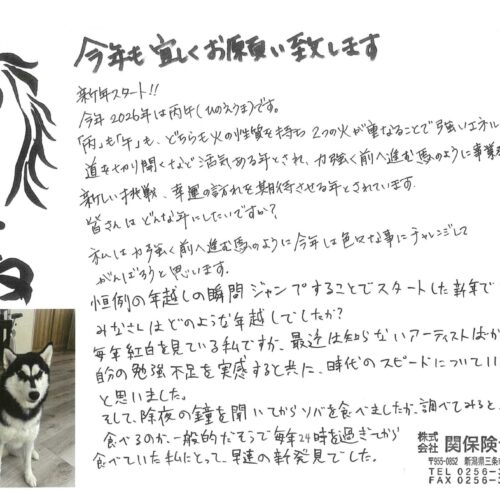 今年も宜しくお願い致します
新年スタート!!
今年2026年は丙午(ひのえうま)です。
「丙」も「午」も、どちらも火の性質を持ち 2つの火が重なることで強いエネル
道を切り開くなど活気ある年とされ、力強く前へ進む馬のように事業
新しい挑戦、幸運の訪れを期待させる年とされています。
皆さんはどんな年にしたいですか?
私は力強く前へ進む馬のように今年は色々な事にチャレンジして
がんばろうと思います。
恒例の年越しの瞬間ジャンプすることでスタートした新年で
みなさんはどのような年越しでしたか?
毎年紅白を見ている私ですが、最近は知らないアーティストばか
自分の勉強不足を実感すると共に、時代のスピードについてい
と思いました。
そして、除夜の鐘を聞いてからソバを食べましたが、調べてみると、
食べるのが一般的だそうで毎年24時を過ぎてから
食べていた私にとって、早速の新発見でした。
株式会社 関保険
〒955-0852 新潟県三条
TEL 0256-3
FAX 0256-